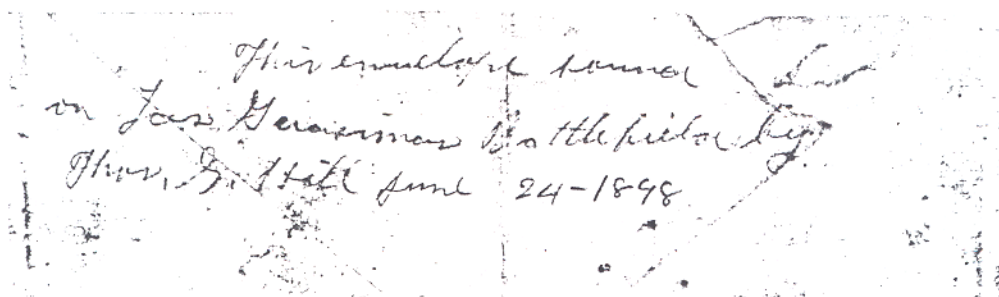 This envelope found
on Las Guasimas Battlefield by
Thos. G. Hill June 24-1898